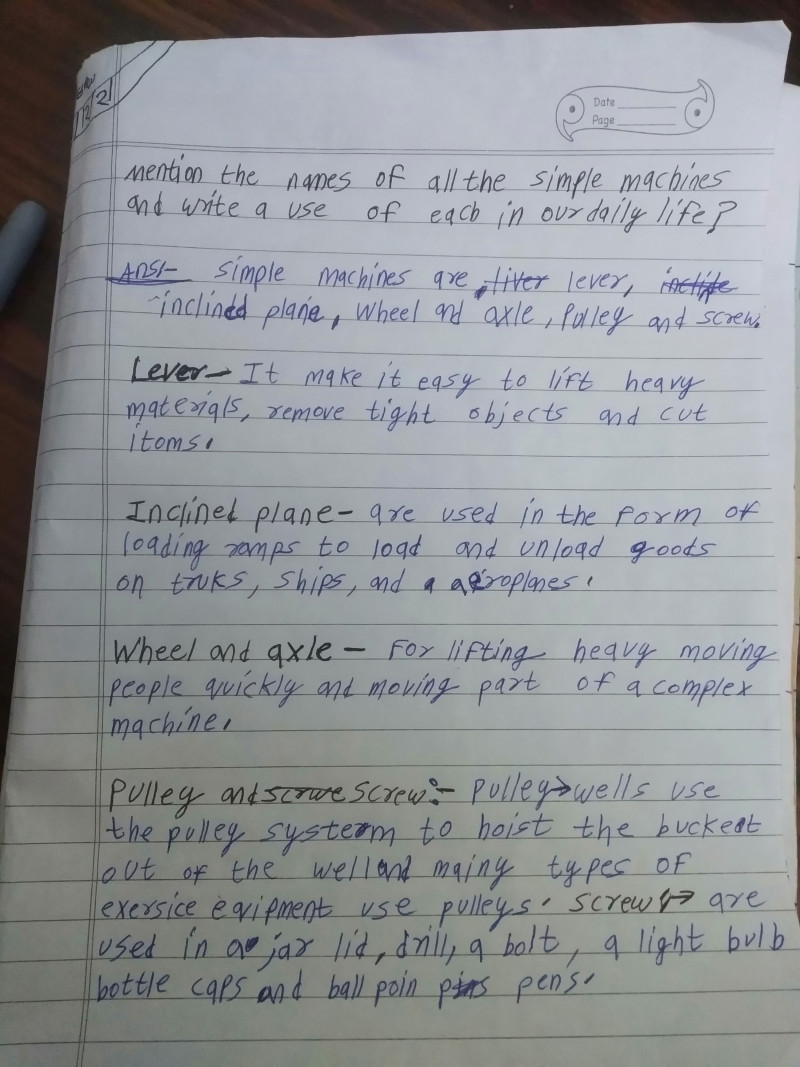 Date
Page
mention the names of all the simple machines
and write a use of each in our daily life?
Ans:- Simple machines are liver lever,
inclined plane, Wheel and axle, Pulley and screw.
Lever- It make it easy to lift heavy
materials, remove tight objects and cut
itoms.
Inclined plane- are used in the form of
loading ramps to load and unload goods
on truks, ships, and a aeroplanes.
Wheel and axle - For lifting heavy moving
people quickly and moving part of a complex
machine.
Pulley and scrwe screw:- Pulley→wells use
the pulley system to hoist the bucket
out of the well and mainy types of
exersice equipment use pulleys. Screw→ are
used in a jar lid, drill, a bolt, a light bulb
bottle caps and ball poin pens.